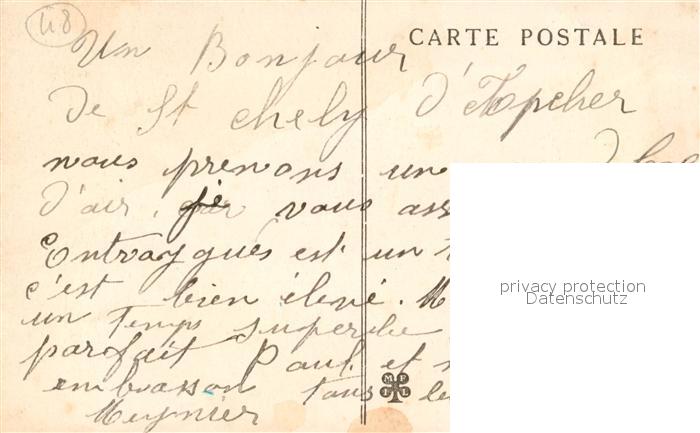 48
CARTE POSTALE
Un Bonjour
De St chely d'Apcher
nous prenons un
d'air. je vous ass
Entraygues est un
c'est bien élevé. M
un Temps superbe
parfait Paul et
embrasson tous le
Meynier
privacy protection
Datenschutz